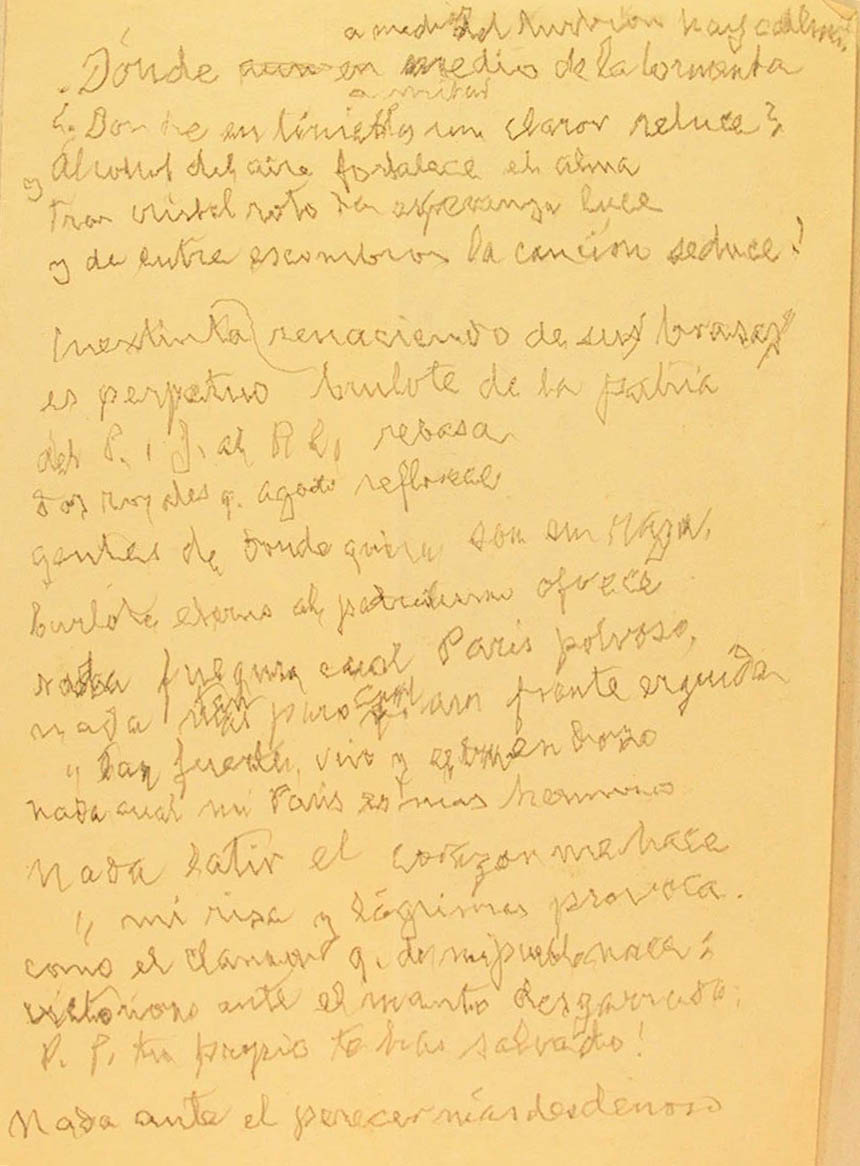 a medio del hay calma
Dónde aun en medio de la tormenta
a mitad
Donde en tinieblas un claror reluce?
y Alcohol del aire fortalece el alma
Tras cristal roto la esperanza luce
y de entre escombros la canción seduce!
Inextinta renaciendo de sus brasas
es perpetuo brulote de la patria
del P. , J. al R. rebasa
Los q. agosto reflorece
gentes de donde quiera son su
eterno al ofrece
nada cual París polvoso,
nada más puro cual q. aun frente erguida
" tan fuerte, vivo y
nada cual mi París es más hermoso
Nada latir el corazón me hace
" mi risa y lágrimas provoca.
como el clamor q. de mi pueblo nace:
victorioso ante el manto desgarrado:
P. P. tu propio te has salvado!
Nada ante el perecer más desdeñoso